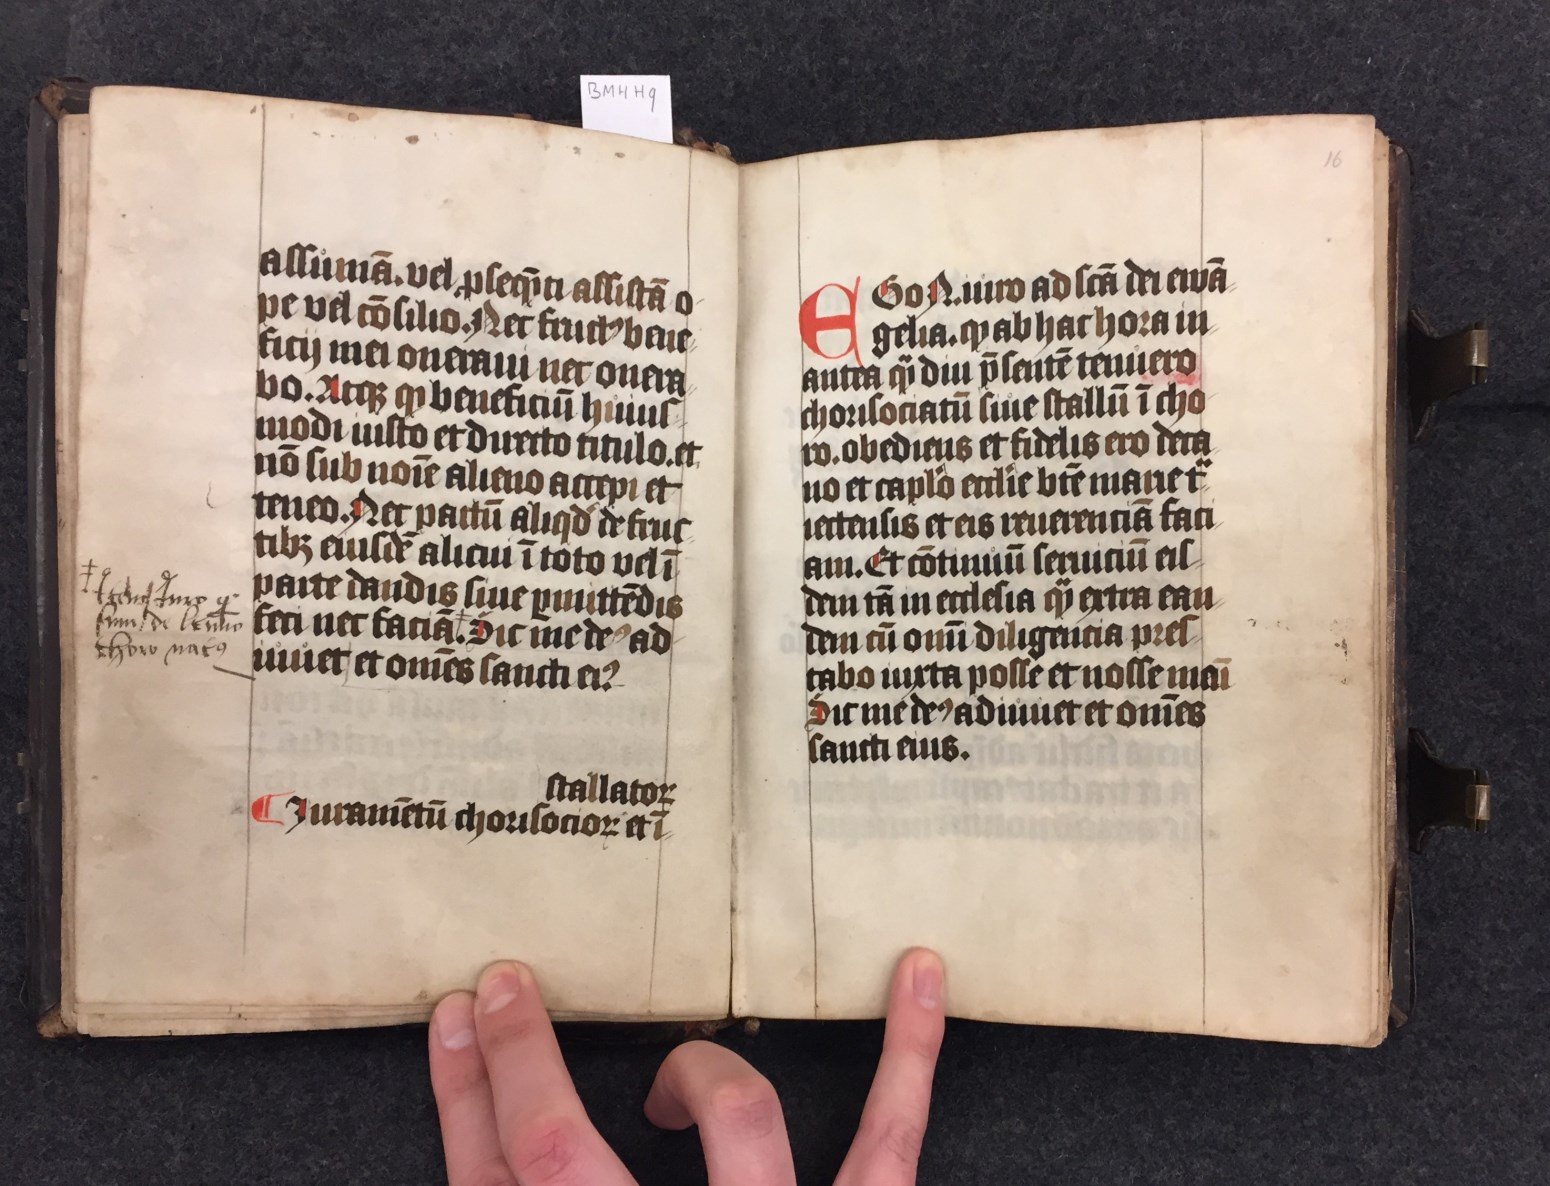 BMHH9
assumā. vel ꝓseq̄nti assistā o⸗
pe vel cōsilio. Nec fructꝰ bene⸗
ficij mei oneraui nec onera⸗
bo. Atqꝫ ꝙ beneficiū huius⸗
modi iusto et directo titulo. et
nō sub noīe alieno accepi et
teneo. Nec pactū aliqd̓ de fruc⸗
tibꝫ eiusdē alicui ī toto vel ī
parte dandis siue ꝑmittēdis
feci nec faciā.‡ Sic me deꝰ ad⸗
iuuet et om̄es sancti eiꝰ
‡
thoro natꝰ
stallatoꝝ
Iuramētū chorisocioꝝ et ī⸗
16
EGo N. iuro ad scā dei ewā⸗
gelia. ꝙ ab hac hora in⸗
antea qͣ̄diu p̄sentē tenuero
chorisociatū siue stallū ī cho
ro. obediens et fidelis ero deca⸗
no et capl̓o eccl̓ie btē marie tͣ⸗
iectensis et eis reuerenciā faci⸗
am. Et cōtinuū seruiciū eis⸗
dem tā in ecclesia qͣ̄ extra ean⸗
dem cū omī diligencia pres⸗
tabo iuxta posse et nosse meū
Sic me deꝰ adiuuet et om̄es
sancti eius.